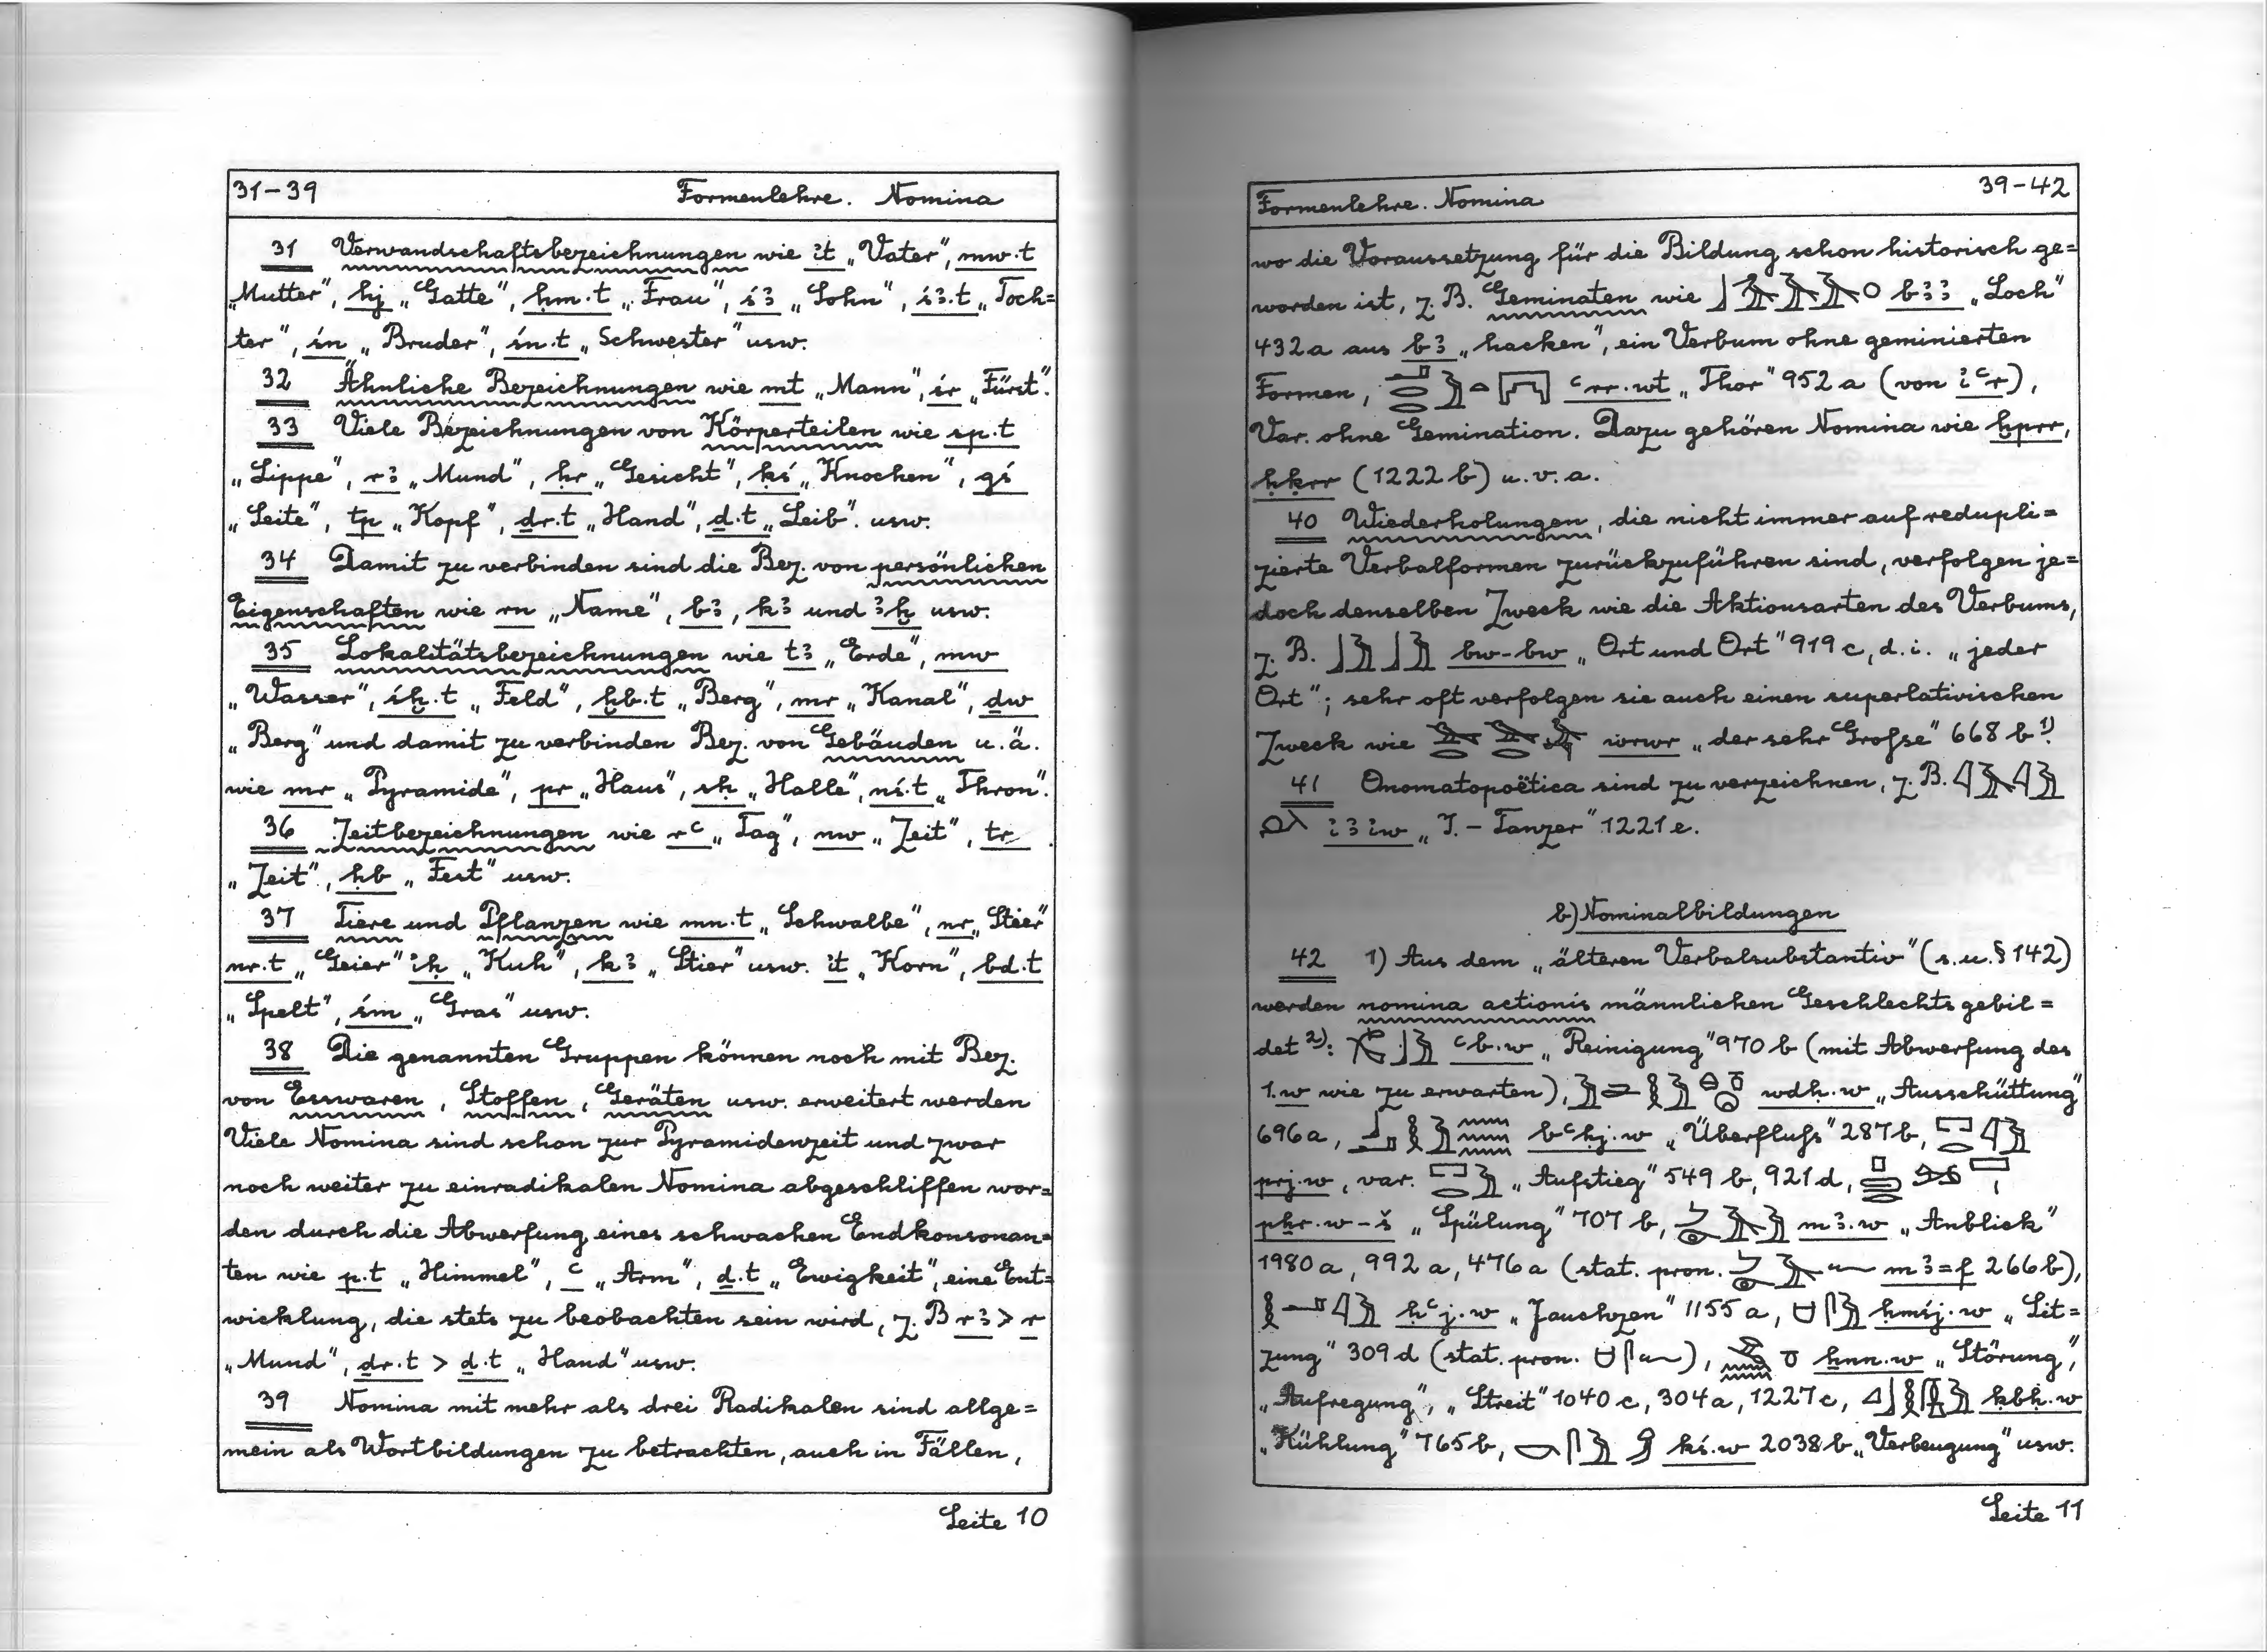 31–39 Formenlehre. Nomina
31 Verwandschaftsbezeichnungen wie ı͗t „Vater", mw·t
„Mutter", hj „Gatte", ḥm·t „Frau", ś3 „Sohn", ś3·t „Toch=
ter", śn „Bruder", śn·t „Schwester" usw.
32 Ähnliche Bezeichnungen wie mt „Mann", śr „Fürst".
33 Viele Bezeichnungen von Körperteilen wie sp·t
„Lippe", r3 „Mund", ḥr „Gesicht", ḳś „Knochen", gś
„Seite", tp „Kopf", ḏr·t „Hand", ḏ·t „Leib". usw.
34 Damit zu verbinden sind die Bez. von persönlichen
Eigenschaften wie rn „Name", b3, k3 und 3ḫ usw.
35 Lokalitätsbezeichnungen wie t3 „Erde", mw
„Wasser", śḫ·t „Feld", ḫb·t „Berg", mr „Kanal", ḏw
„Berg" und damit zu verbinden Bez. von Gebäuden u.ä.
wie mr „Pyramide", pr „Haus", sḥ „Halle", nś·t „Thron".
36 Zeitbezeichnungen wie rꜥ „Tag", nw „Zeit", tr
„Zeit", ḥb „Fest" usw.
37 Tiere und Pflanzen wie mn·t „Schwalbe", nr „Stier"
nr·t „Geier" ı͗ḥ „Kuh", k3 „Stier" usw. ı͗t „Korn", bd·t
„Spelt", śm „Gras" usw.
38 Die genannten Gruppen können noch mit Bez.
von Esswaren, Stoffen, Geräten usw. erweitert werden
Viele Nomina sind schon zur Pyramidenzeit und zwar
noch weiter zu einradikalen Nomina abgeschliffen wor=
den durch die Abwerfung eines schwachen Endkonsonan=
ten wie p·t „Himmel", ꜥ „Arm", ḏ·t „Ewigkeit", eine Ent=
wicklung, die stets zu beobachten sein wird, z. B r3 > r
„Mund", ḏr·t > ḏ·t „Hand" usw.
39 Nomina mit mehr als drei Radikalen sind allge=
mein als Wortbildungen zu betrachten, auch in Fällen,
Seite 10
Formenlehre. Nomina 39–42
wo die Voraussetzung für die Bildung schon historisch ge=
worden ist, z. B. Geminaten wie b33 „Loch"
432a aus b3 „hacken", ein Verbum ohne geminierten
Formen, ꜥrr·wt „Thor" 952 a (von ı͗ꜥr),
Var. ohne Gemination. Dazu gehören Nomina wie ḫprr,
ḥḳrr (1222 b) u.v.a.
40 Wiederholungen, die nicht immer auf redupli=
zierte Verbalformen zurückzuführen sind, verfolgen je=
doch denselben Zweck wie die Aktionsarten des Verbums,
z. B. bw-bw „Ort und Ort" 919 c, d.i. „jeder
Ort"; sehr oft verfolgen sie auch einen superlativischen
Zweck wie wrwr „der sehr Große" 668 b 1).
41 Onomatopoëtica sind zu verzeichnen, z. B.
ı͗3ı͗w „I. – Tanzer" 1221e.
b) Nominalbildungen
42 1) Aus dem „älteren Verbalsubstantiv" (s.u. § 142)
werden nomina actionis männlichen Geschlechts gebil=
det 2): ꜥb·w „Reinigung" 970 b (mit Abwerfung des
1. w wie zu erwarten), wdḥ·w „Ausschüttung"
696a, bꜥḥj·w „Überfluß" 287b,
prj·w, var. „Aufstieg" 549 b, 921 d,
pẖr·w-š „Spülung" 707 b, m3·w „Anblick"
1980 a, 992 a, 476 a (stat. pron. m3=f 266 b),
ḥꜥj·w „Jauchzen" 1155 a, ḥmśj·w „Sit=
zung" 309 d (stat. pron. ), ẖnn·w „Störung",
„Aufregung", „Streit" 1040 c, 304 a, 1227 c, ḳbḥ·w
„Kühlung" 765 b, kś·w 2038 b „Verbeugung" usw.
Seite 11